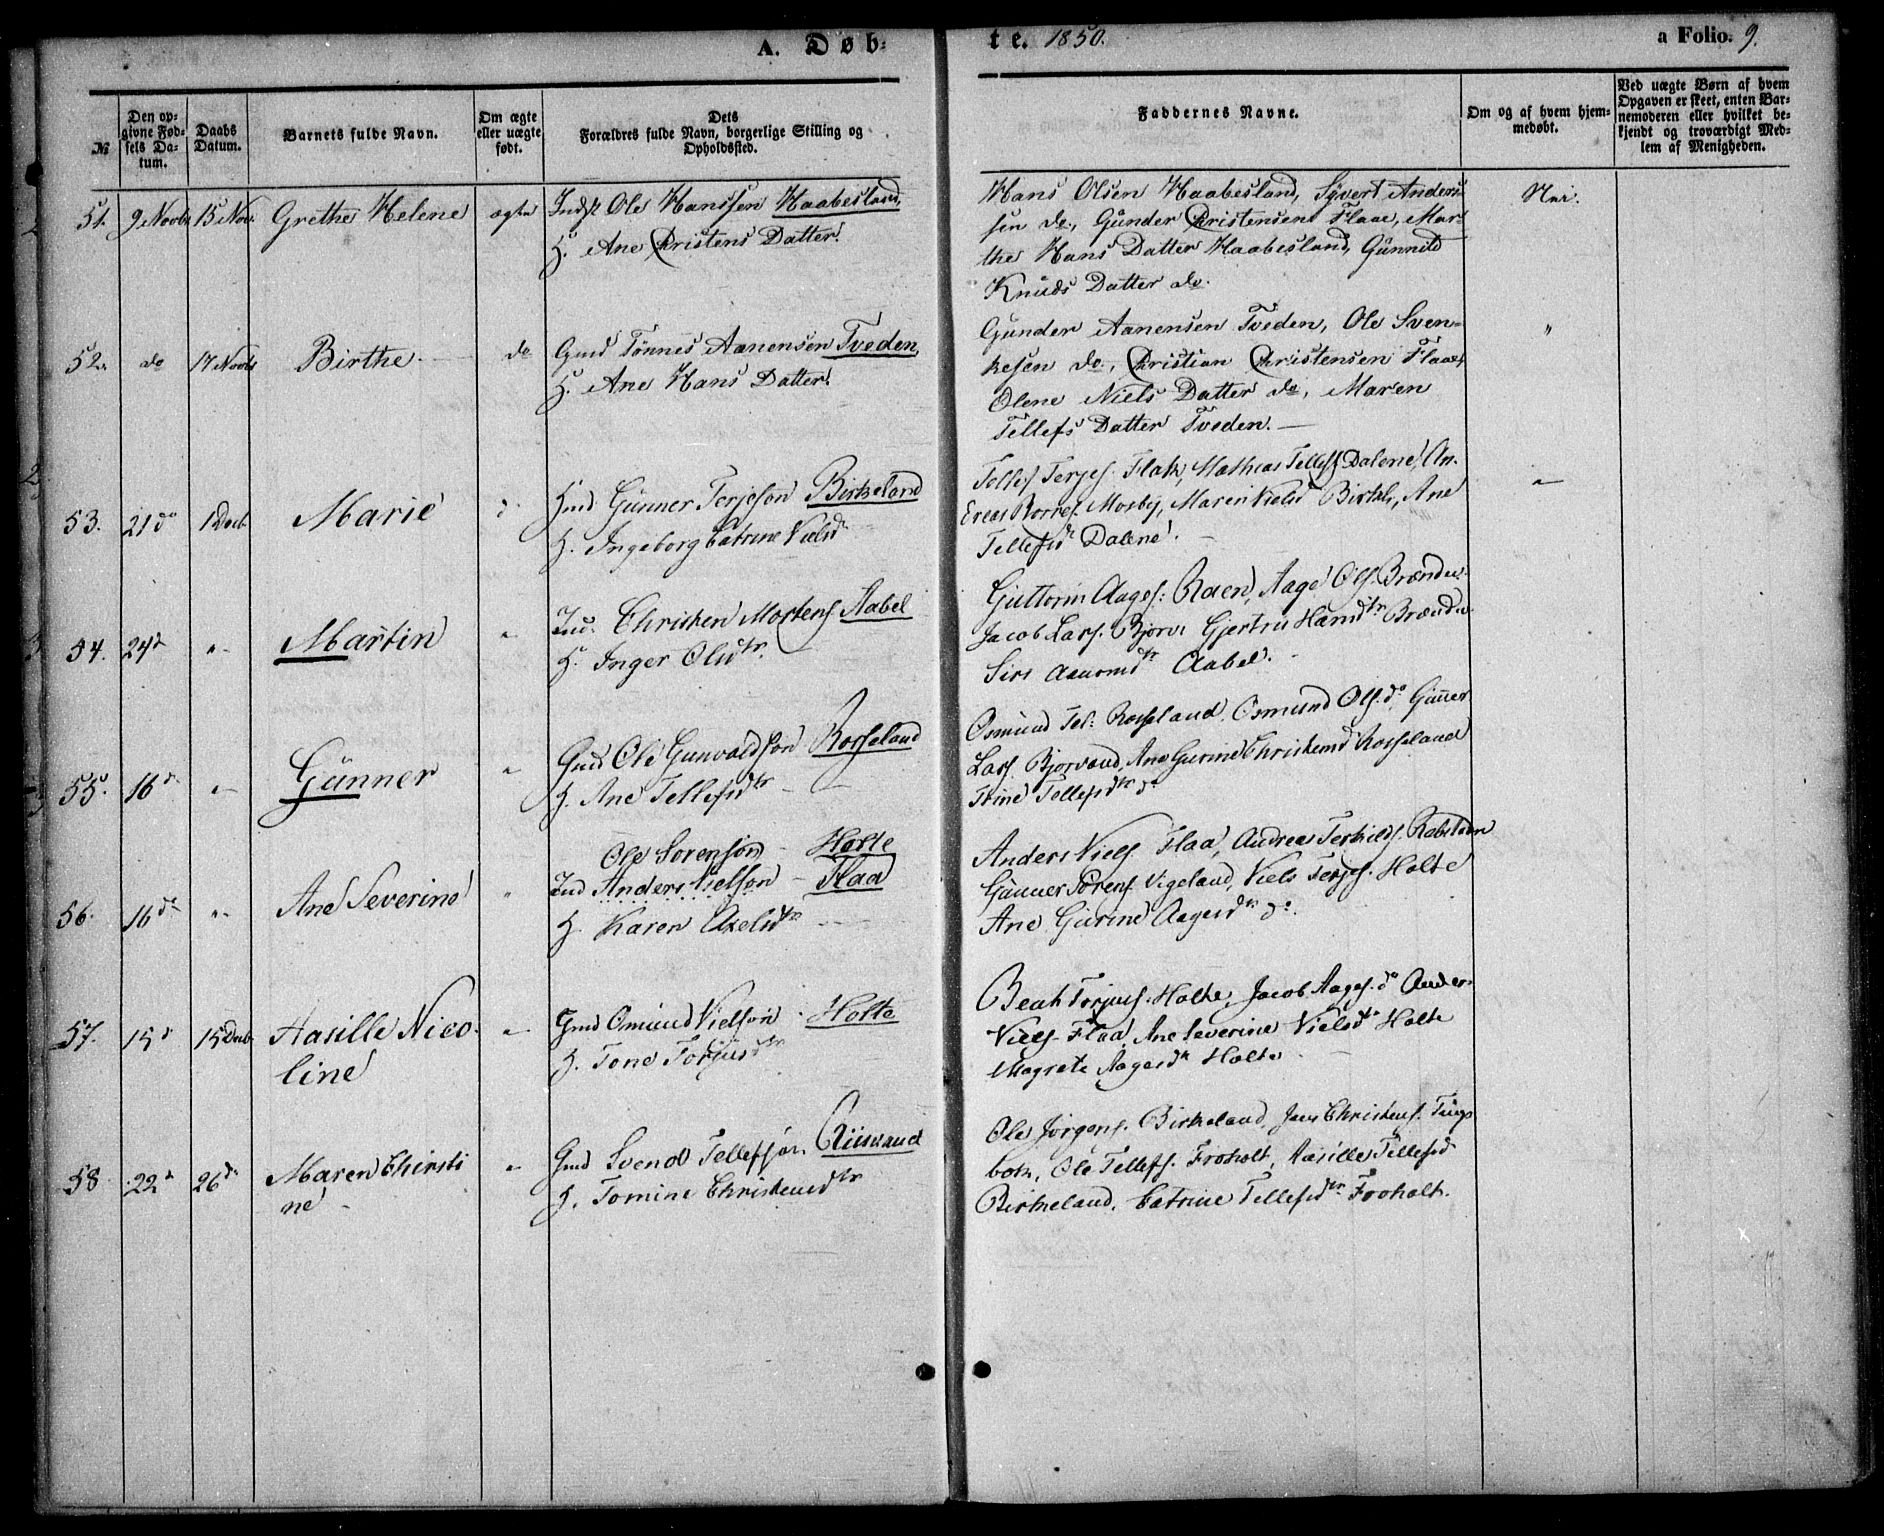 A. Døb-
te. 1850.
a Folio. 9.
№
Den op-
givne Fød-
sels Da-
tum.
Daabs
Datum.
Barnets fulde Navn.
Om ægte
eller uægte
født.
Dets
Forældres fulde Navn, borgerlige Stilling og
Opholdssted.
Faddernes Navne.
Om og af hvem hjem-
medøbt.
Ved uægte Børn af hvem
Opgaven er skeet, enten Bar-
nemoderen eller hvilket be-
kjendt og troværdigt Med-
lem af Menigheden.
51. 9 Novbr 15 Nov. Grethe Helene ægte Indst Ole Hanssen Haabesland,
H. Ane Christens Datter.
Hans Olsen Haabesland, Syvert Anders-
sen do, Gunder Christensen Flaae, Mar-
the Hans Datter Haabesland, Gunnild
Knuds Datter do.
Nei.
52. do 17 Novbr Birthe do Gmd Tønnes Aanensen Tveden,
H. Ane Hans Datter.
Gunder Aanensen Tveden, Ole Sven-
kesen do, Christian Christensen Flaae,
Olene Niels Datter do, Maren
Tellefs Datter Tveden.
"
53. 21 do 1 Decb. Marie d. Hmd Gunner Terjesøn Birkeland
H. Ingeborg Catrine Nielsdr
Tellef Terjes. Flak, Mathias Tellefs. Dalene, An-
dreas Mosby, Maren Nielsd Birkel., Ane
Tellefsdr Dalene.
54. 24 d " Martin " Ind. Christen Mortens. Aabel
H. Inger Olsdtr.
Guttorm Aages: Raen, Aage Ols. Brønden
Jacob Lars. Bjorv. Gjertru Brønden
Siri dtr Aabel.
55. 16 d " Gunner " Gmd Ole Gunvaldsøn Rosseland
H. Ane Tellefsdtr
Osmund Tel: Rosseland, Osmund Ols. do, Gunner
Lars. Bjorvand, Ane Gurine Christensd Rosseland
Stine Tellefsdtr do
56. 16 do " Ane Severine " Ole Sørensøn Holte
Ind Anders Nielsøn Flaa
H. Karen Axelsdtr
Anders Niels. Flaa, Andreas Terkilds. Rabstaden
Gunner Sørens. Vigeland, Niels Terjes. Holte
Ane Gurine Aagesdtr do.
57. 15 d 15 Decb. Aasille Nico-
line
" Gmd Osmund Nielsøn Holte
H. Tone Torjusdtr
Beat Torjus. Holte, Jacob Aages. do Anders
Niels. Flaa, Ane Severine Nielsdtr Holte
Magrete Aagesdtr Holte
58 22 d 26 d Maren Christi
ne
" Gmd Svend Tellefsøn Riisvand
H. Tomine Christensdtr
Ole Jørgens. Birkeland, Jens Christens. Tings-
bok, Ole Tellefs. Froholt, Aasille Tellefsd
Birkeland, Catrine Tellefsdtr Froholt.